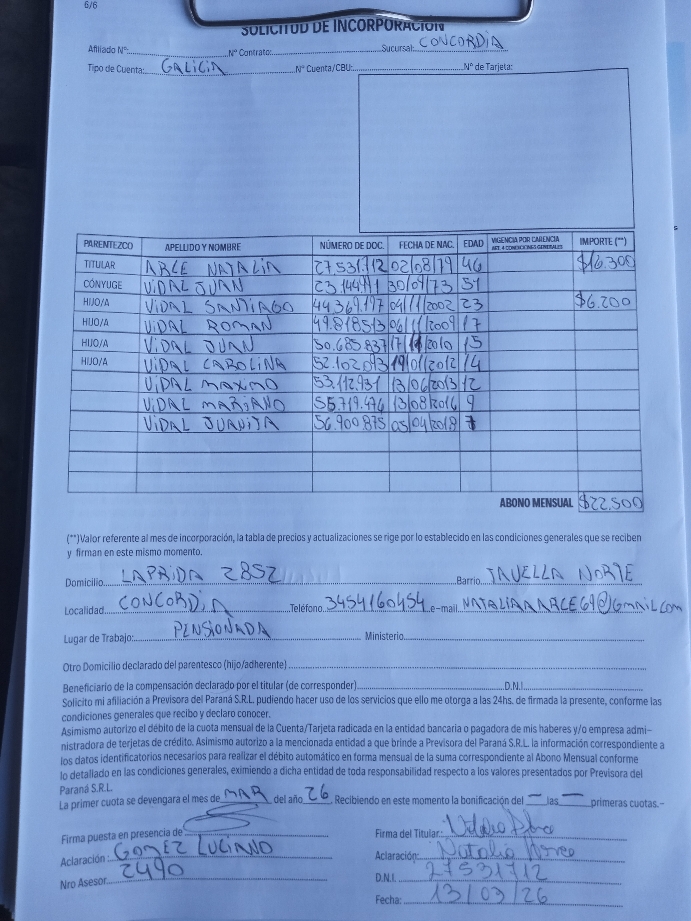 6/6
SOLICITUD DE INCORPORACIÓN
Afiliado Nº: Nº Contrato: Sucursal: CONCORDIA
Tipo de Cuenta: GALICIA Nº Cuenta/CBU: Nº de Tarjeta:
PARENTEZCO APELLIDO Y NOMBRE NÚMERO DE DOC. FECHA DE NAC. EDAD VIGENCIA POR CARENCIA ART. 4 CONDICIONES GENERALES IMPORTE (**)
TITULAR ARCE NATALIA 27531.712 02/08/79 46 $16.300
CÓNYUGE VIDAL JUAN 30/09/73 51
HIJO/A VIDAL SANTIAGO 44.369.197 09/11/2002 23 $6.200
HIJO/A VIDAL ROMAN 06/11/2009 17
HIJO/A VIDAL JUAN 50.685.837 15
HIJO/A VIDAL CAROLINA 52.102.093 19/01/2012 14
VIDAL MAXIMO 53.112.931 13/06/2013 12
VIDAL MARIANO 55.719.476 13/08/2016 9
VIDAL JUANITA 56.900.875 05/04/2018 7
ABONO MENSUAL $22.500
(**)Valor referente al mes de incorporación, la tabla de precios y actualizaciones se rige por lo establecido en las condiciones generales que se reciben
y firman en este mismo momento.
Domicilio LAPRIDA 2852 Barrio TAVELLA NORTE
Localidad CONCORDIA Teléfono 3454160454 e-mail NATALIAAARCE69@GMAIL.COM
Lugar de Trabajo: PENSIONADA Ministerio
Otro Domicilio declarado del parentesco (hijo/adherente)
Beneficiario de la compensación declarado por el titular (de corresponder) D.N.I.
Solicito mi afiliación a Previsora del Paraná S.R.L. pudiendo hacer uso de los servicios que ello me otorga a las 24hs. de firmada la presente, conforme las
condiciones generales que recibo y declaro conocer.
Asimismo autorizo el débito de la cuota mensual de la Cuenta/Tarjeta radicada en la entidad bancaria o pagadora de mis haberes y/o empresa admi-
nistradora de terjetas de crédito. Asimismo autorizo a la mencionada entidad a que brinde a Previsora del Paraná S.R.L. la información correspondiente a
los datos identificatorios necesarios para realizar el débito automático en forma mensual de la suma correspondiente al Abono Mensual conforme
lo detallado en las condiciones generales, eximiendo a dicha entidad de toda responsabilidad respecto a los valores presentados por Previsora del
Paraná S.R.L.
La primer cuota se devengara el mes de MAR del año 26. Recibiendo en este momento la bonificación del — las — primeras cuotas.-
Firma puesta en presencia de Firma del Titular:
Aclaración: GOMEZ LUCIANO Aclaración: Natalia Arce
Nro Asesor 2490 D.N.I. 27531712
Fecha: 13/03/26